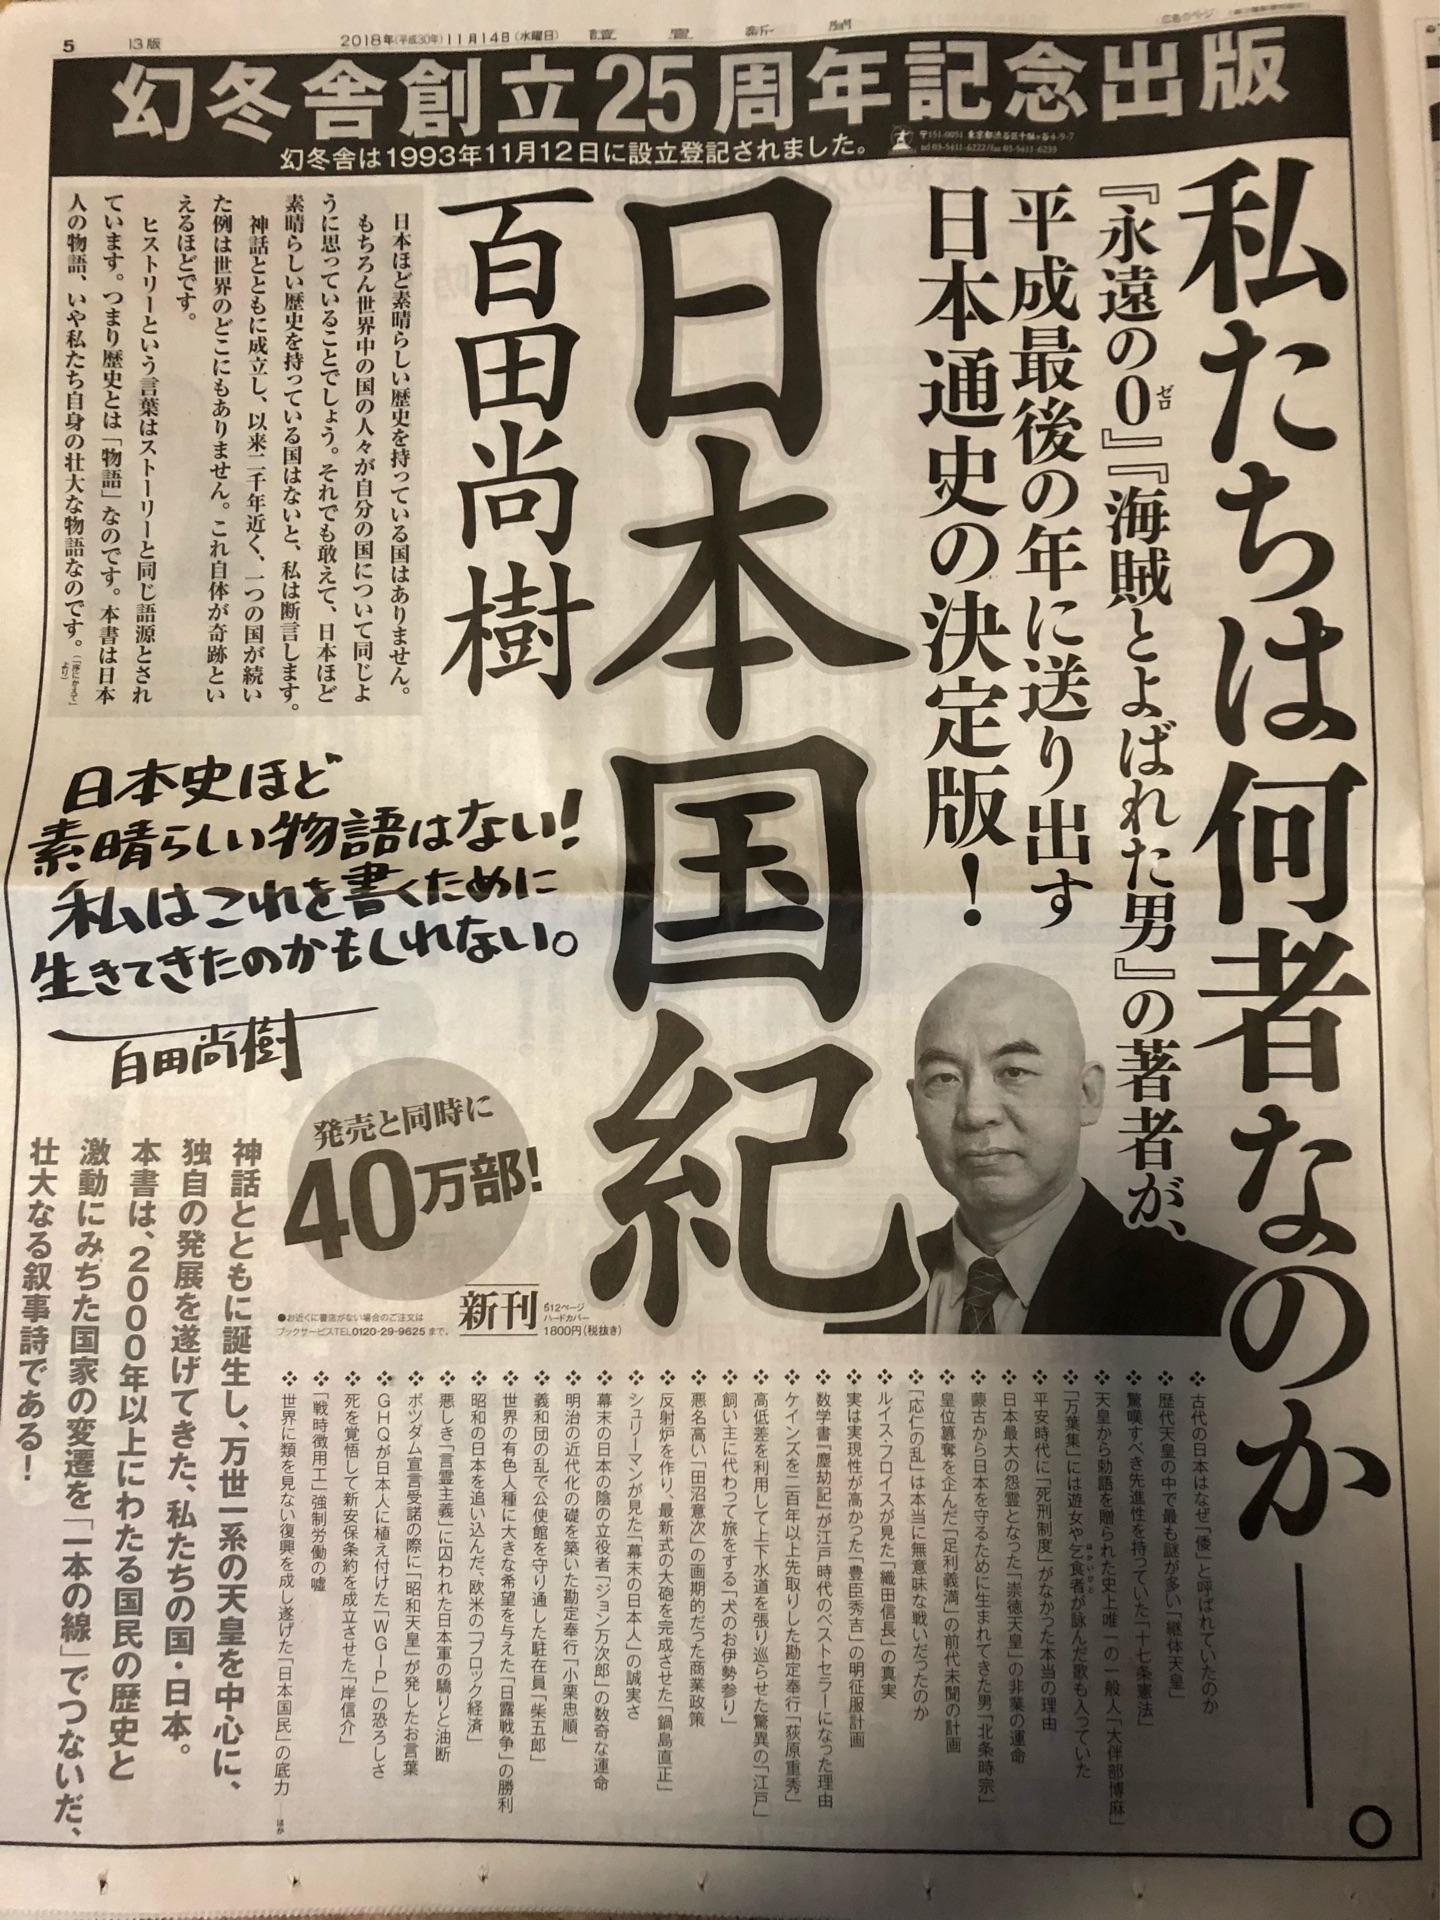 5
13版
2018年(平成30年)11月14日(水曜日)
讀賣新聞
広告のページ
幻冬舎創立25周年記念出版
幻冬舎は1993年11月12日に設立登記されました。
〒151-0051 東京都渋谷区千駄ヶ谷4-9-7
tel 03-5411-6222/fax 03-5411-6233
私たちは何者なのか――。
『永遠の0』『海賊とよばれた男』の著者が、
ゼロ
平成最後の年に送り出す
日本通史の決定版!
日本国紀
百田尚樹
日本ほど素晴らしい歴史を持っている国はありません。
もちろん世界中の国の人々が自分の国について同じよ
うに思っていることでしょう。それでも敢えて、日本ほど
素晴らしい歴史を持っている国はないと、私は断言します。
神話とともに成立し、以来二千年近く、一つの国が続い
た例は世界のどこにもありません。これ自体が奇跡とい
えるほどです。
ヒストリーという言葉はストーリーと同じ語源とされ
ています。つまり歴史とは「物語」なのです。本書は日本
人の物語、いや私たち自身の壮大な物語なのです。
(「序にかえて」より)
日本史ほど
素晴らしい物語はない!
私はこれを書くために
生きてきたのかもしれない。
百田尚樹
発売と同時に
40万部!
●お近くに書店がない場合のご注文は
ブックサービスTEL0120-29-9625まで。
新刊
512ページ
ハードカバー
1800円(税抜き)
❖古代の日本はなぜ「倭」と呼ばれていたのか
❖歴代天皇の中で最も謎が多い「継体天皇」
❖驚嘆すべき先進性を持っていた「十七条憲法」
❖天皇から勅語を贈られた史上唯一の一般人「大伴部博麻」
❖「万葉集」には遊女や乞食者が詠んだ歌も入っていた
ほかいびと
❖平安時代に「死刑制度」がなかった本当の理由
❖日本最大の怨霊となった「崇徳天皇」の非業の運命
❖蒙古から日本を守るために生まれてきた男「北条時宗」
❖皇位簒奪を企んだ「足利義満」の前代未聞の計画
❖「応仁の乱」は本当に無意味な戦いだったのか
❖ルイス・フロイスが見た「織田信長」の真実
❖実は実現性が高かった「豊臣秀吉」の明征服計画
❖数学書『塵劫記』が江戸時代のベストセラーになった理由
❖ケインズを二百年以上先取りした勘定奉行「荻原重秀」
❖高低差を利用して上下水道を張り巡らせた驚異の「江戸」
❖飼い主に代わって旅をする「犬のお伊勢参り」
❖悪名高い「田沼意次」の画期的だった商業政策
❖反射炉を作り、最新式の大砲を完成させた「鍋島直正」
❖シュリーマンが見た「幕末の日本人」の誠実さ
❖幕末の日本の陰の立役者「ジョン万次郎」の数奇な運命
❖明治の近代化の礎を築いた勘定奉行「小栗忠順」
❖義和団の乱で公使館を守り通した駐在員「柴五郎」
❖世界の有色人種に大きな希望を与えた「日露戦争」の勝利
❖昭和の日本を追い込んだ、欧米の「ブロック経済」
❖悪しき「言霊主義」に囚われた日本軍の驕りと油断
❖ポツダム宣言受諾の際に「昭和天皇」が発したお言葉
❖GHQが日本人に植え付けた「WGIP」の恐ろしさ
❖死を覚悟して新安保条約を成立させた「岸信介」
❖「戦時徴用工」強制労働の嘘
❖世界に類を見ない復興を成し遂げた「日本国民」の底力――ほか
神話とともに誕生し、万世一系の天皇を中心に、
独自の発展を遂げてきた、私たちの国・日本。
本書は、2000年以上にわたる国民の歴史と
激動にみちた国家の変遷を「一本の線」でつないだ、
壮大なる叙事詩である!